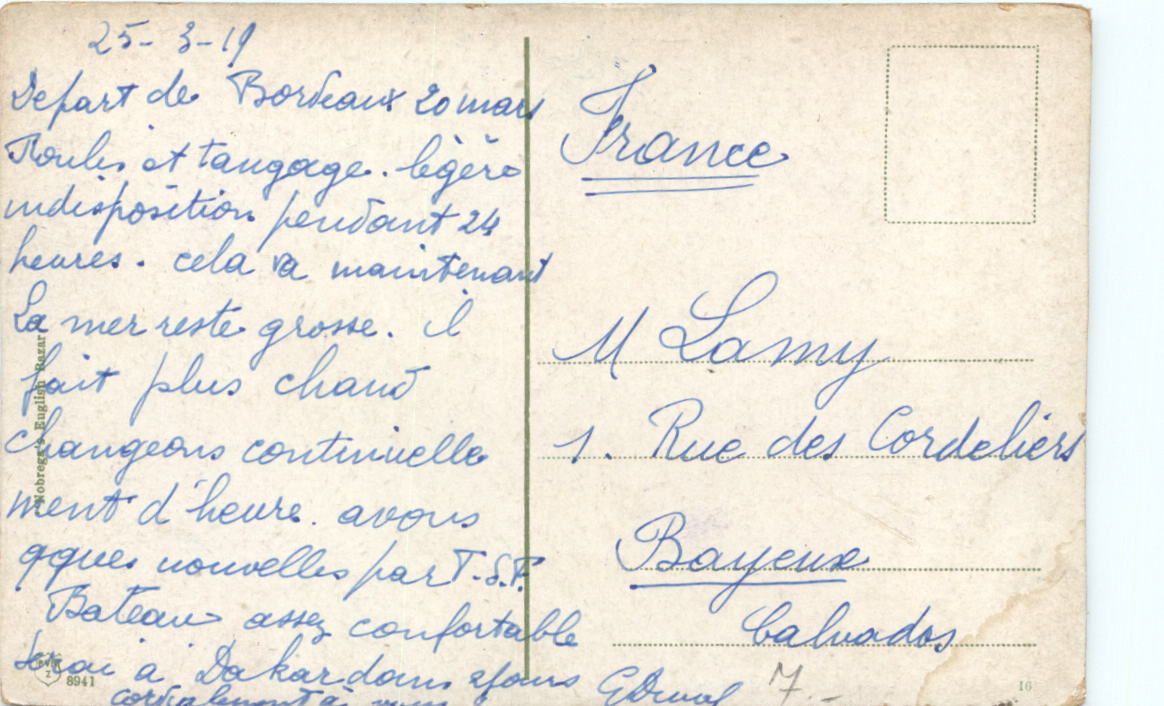 25-3-19
Depart de Bordeaux 20 mars
Roulis et tangage. légère
indisposition pendant 24
heures. cela va maintenant
La mer reste grosse. il
fait plus chaud
changeons continuelle
ment d'heure. avons
qques nouvelles par T.S.F.
Bateau assez confortable
Serai à Dakar dans 2 jours
cordialement à vous
GDuval
France
M Lamy
1. Rue des Cordeliers
Bayeux
Calvados
7.-
Nobrega's English Bazar
8941
16